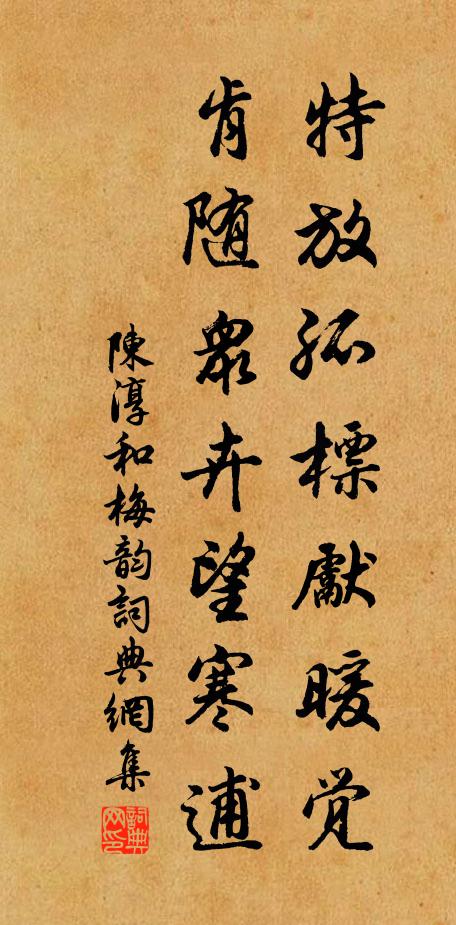 特放孤標獻暖覚
肯随眾卉望寒逋
陳淳和梅韵詞典網集
詞典网印